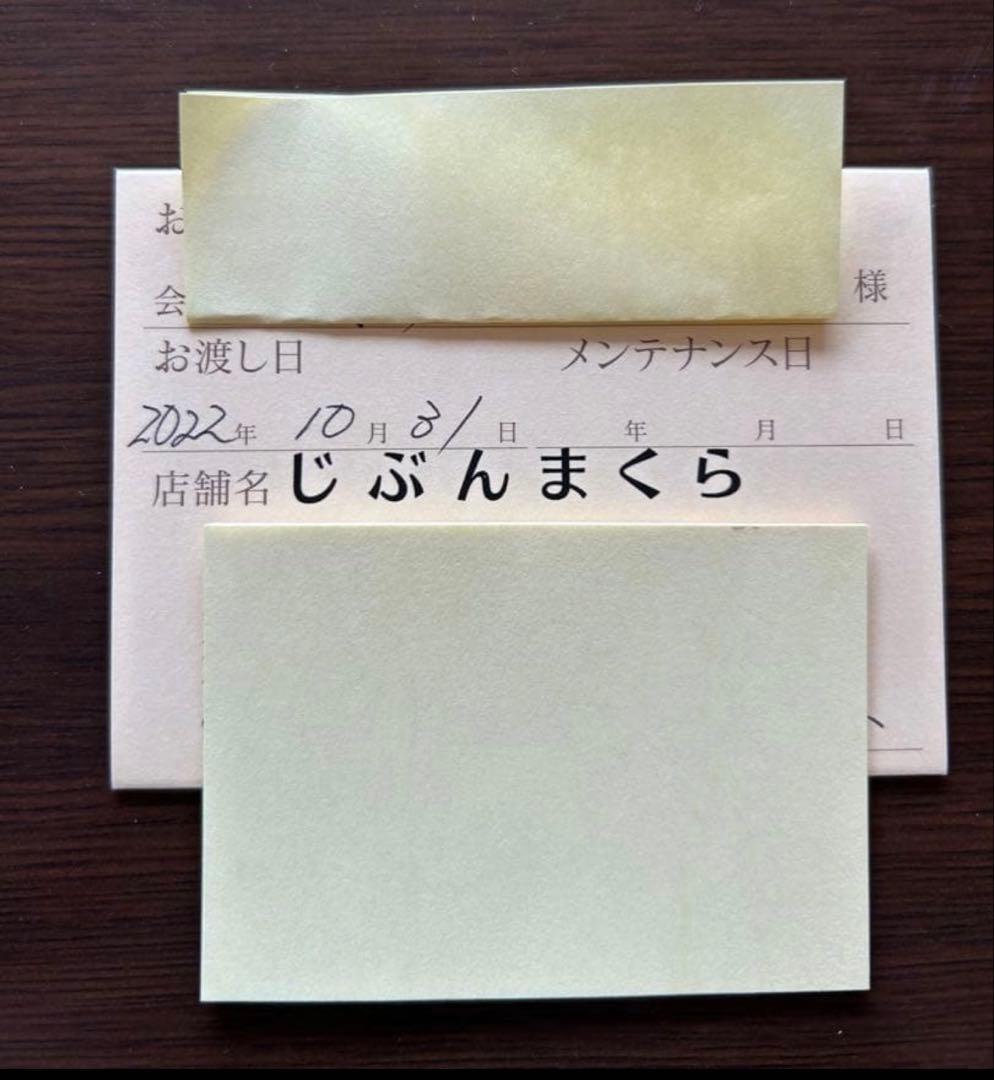 お
会 様
お渡し日 メンテナンス日
2022年 10月 31日 年 月 日
店舗名 じぶんまくら